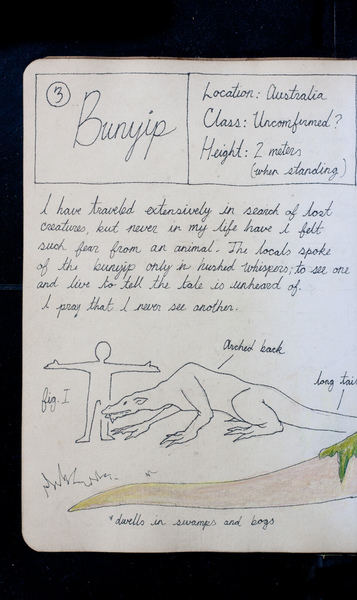 3
Bunyip
Location: Australia
Class: Uncomfirmed?
Height: 2 meters
(when standing)
I have traveled extensively in search of lost
creatures, but never in my life have I felt
such fear from an animal. The locals spoke
of the bunyip only in hushed whispers; to see one
and live to tell the tale is unheard of.
I pray that I never see another.
Arched back
long tail
fig. I
*dwells in swamps and bogs